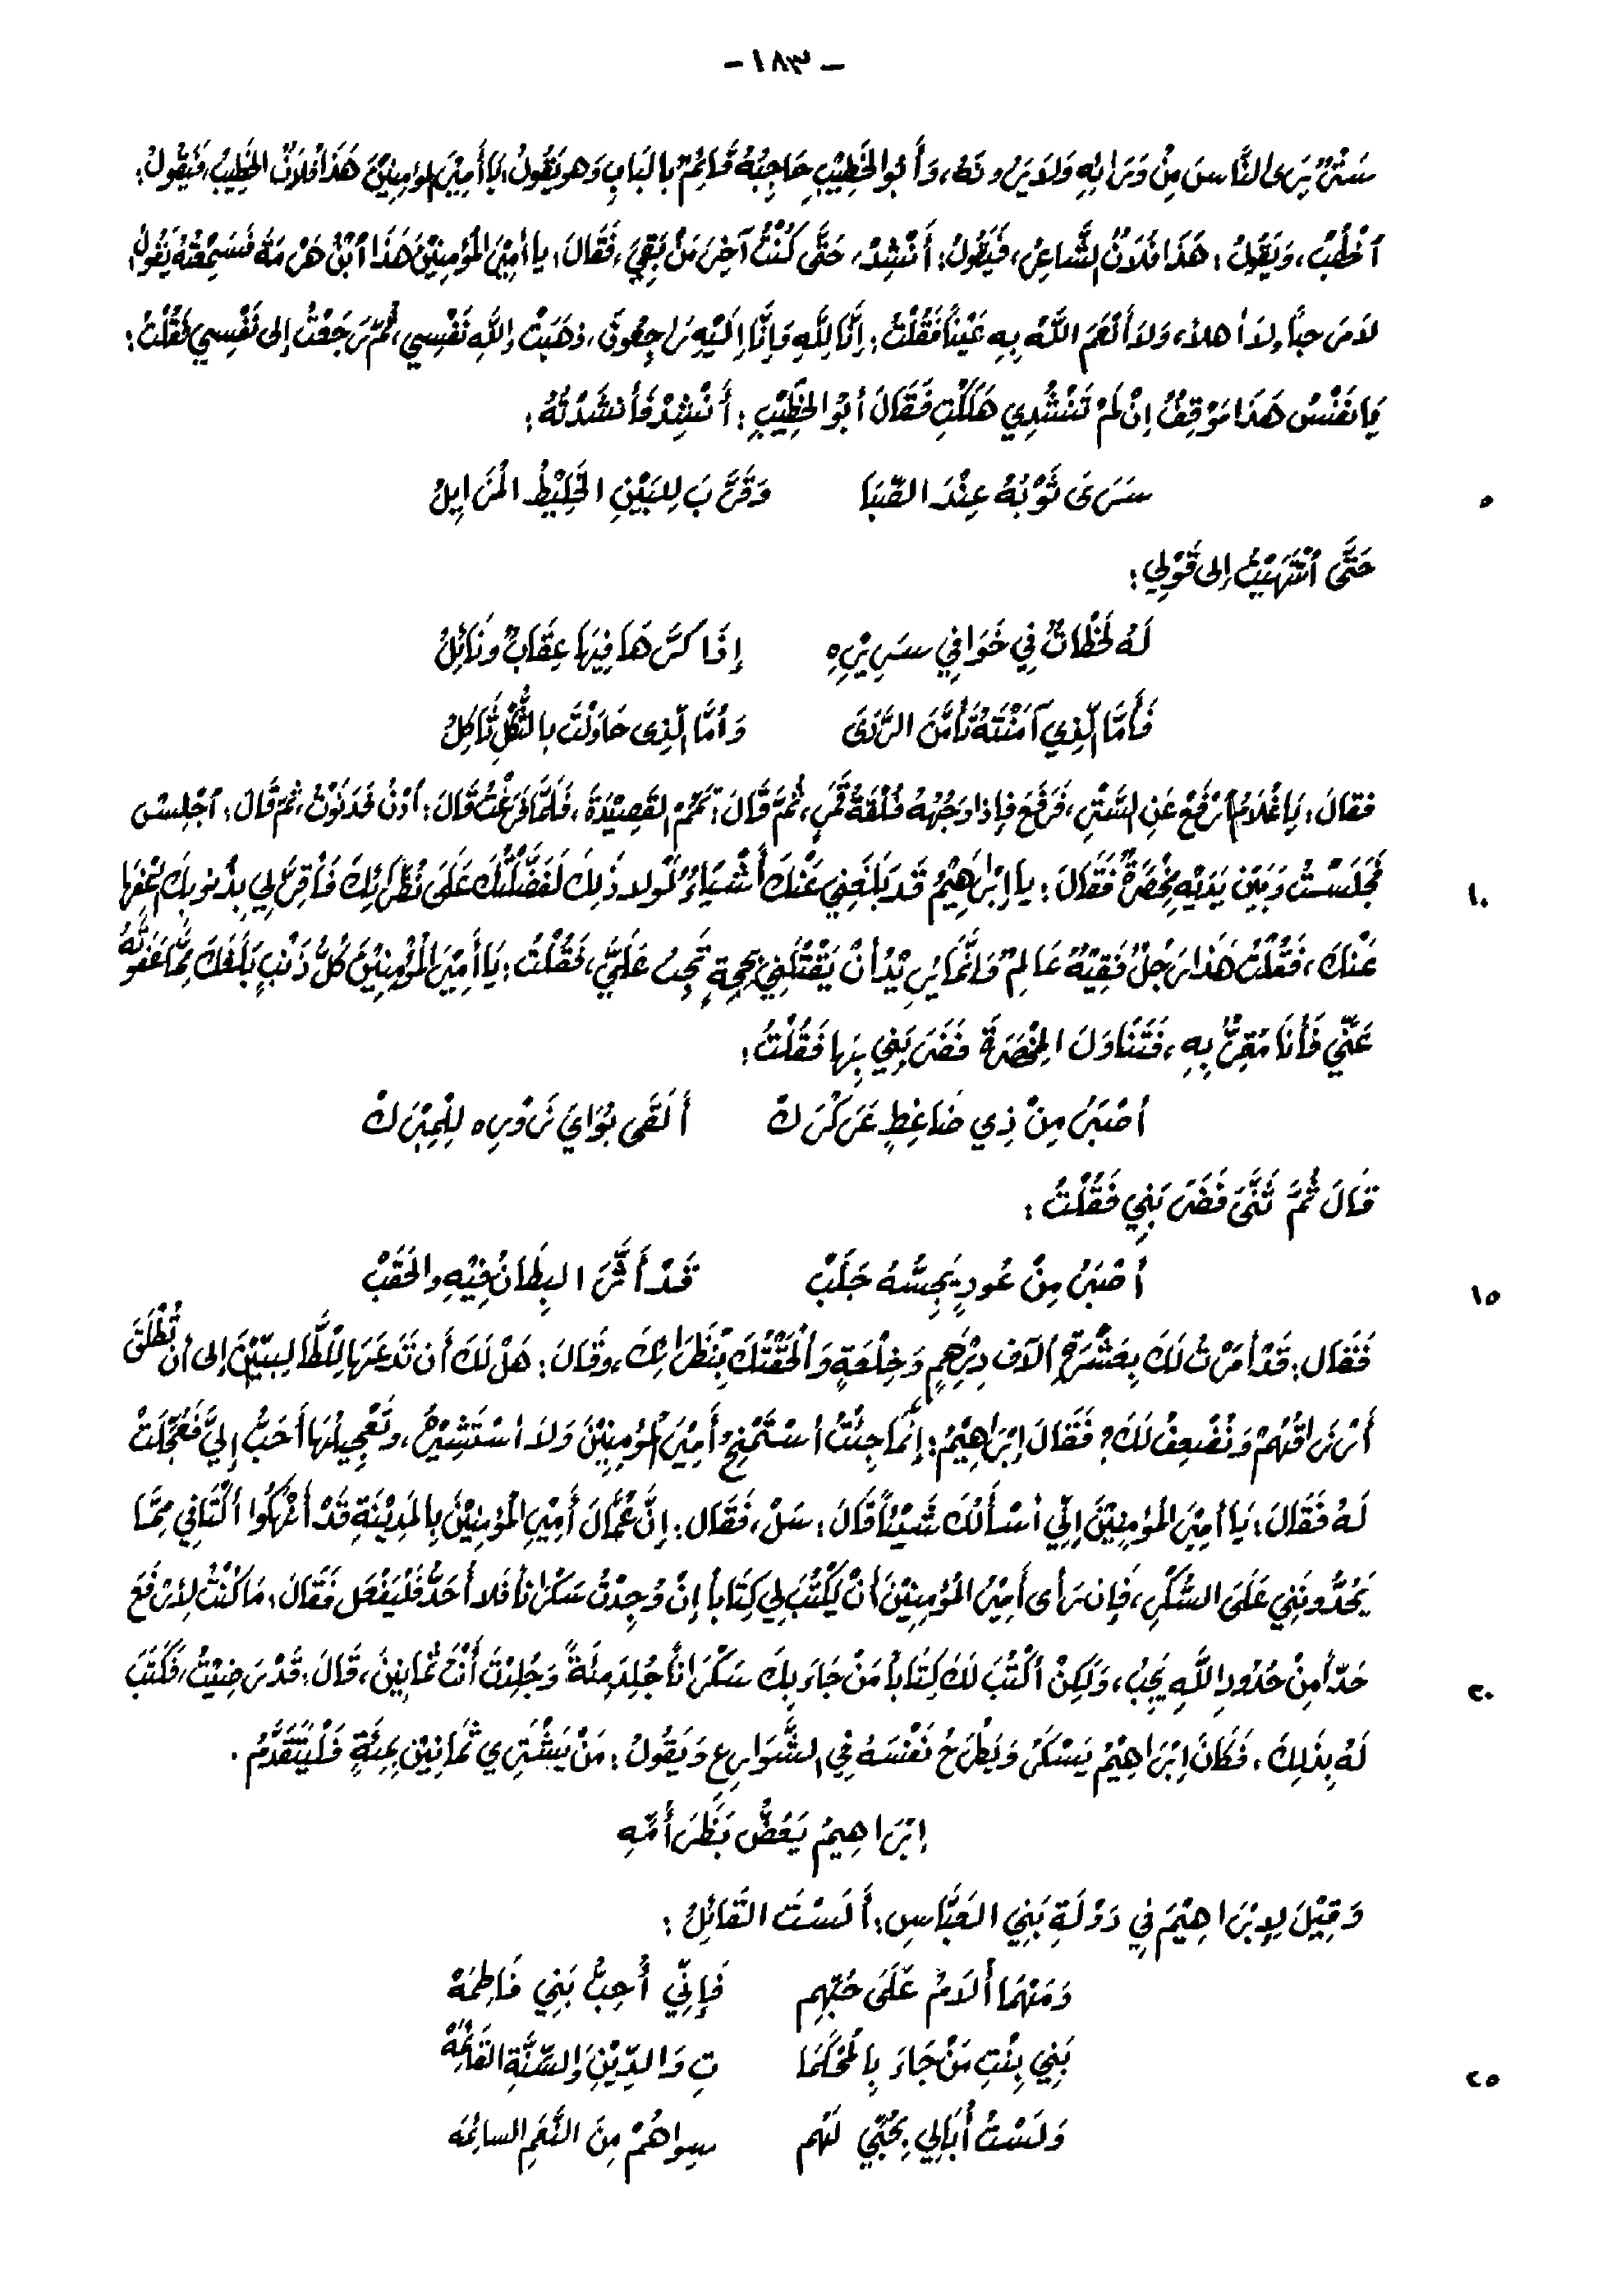 - ١٨٣ -
سَتْرٌ يَرَى النَّاسَ مِنْ وَرَائِهِ وَلَا يَرَوْنَهُ، وَأَبُو الخَطِيْبِ حَاجِبُهُ قَائِمٌ بِالبَابِ وَهو يَقُولُ: يَا أَمِيْرَ المؤمِنِيْنَ هَذَا فُلَانٌ الخَطِيْبُ، فَيَقُولُ:
ٱخْطُبْ، وَيَقُولُ: هَذَا فُلَانٌ الشَّاعِرُ، فَيَقُولُ: أَنْشِدْ، حَتَّى كُنْتُ آخِرَ مَنْ بَقِيَ، فَقَالَ: يا أَمِيْرَ المُؤْمِنِيْنَ هَذَا ٱبْنُ هَرْمَةَ فَسَمِعْتُهُ يَقُولُ:
لَا مَرْحباً ولا أهلاً، وَلَا أَنْعَمَ اللَّهُ بِهِ عَيْناً فَقُلْتُ: إِنَّا لِلَّهِ وَإِنَّا إِلَيْهِ رَاجِعُونَ، ذهَبَتْ واللَّهِ نَفْسِي، ثُمَّ رَجَعْتُ إلى نَفْسِي فَقُلْتُ:
يَا نَفْسُ هَذَا مَوْقِفٌ إِنْ لَمْ تَنْشُدِي هَلَكْتِ فَقَالَ أبُو الخَطِيْبِ: أَنْشِدْ فَأَنْشَدْتُهُ:
سَرَى ثَوْبُهُ عِنْدَ الصِّبَا وَقَرَّبَ لِلبَيْنِ الخَلِيْطُ الْمُزَايِلُ ٥
حَتَّى ٱنْتَهَيْتُ إلى قَوْلِي:
لَهُ لَحَظَاتٌ فِي خَوَافِي سَرِيْرِهِ إِذَا كَرَّهَا فِيْهَا عِقَابٌ وَنَائِلُ
فَأَمَّا الَّذِي آمَنْتَهُ تَأْمَنُ الرَّدَى وَأَمَّا الَّذِى حَاوَلْتَ بِالثُّكْلِ ثَاكِلُ
فقالَ: يَا غُلَامُ ٱرْفَعْ عَنِ السَّتْرِ، فَرَفَعَ فإذا وَجْهُهُ فُلْقَةُ قَمَرٍ، ثُمَّ قَالَ: تَمِّمْ القَصِيْدَةَ، فَلَمَّا فَرَغْتُ قَالَ: ٱدْنُ فَدَنَوْتُ، ثُمَّ قَالَ: ٱجْلِسْ
فَجَلَسْتُ وَبَيْنَ يَدَيْهِ مِخْصَرَةٌ فَقَالَ: يا إِبْرَاهِيْمُ قَد بَلَغَنِي عَنْكَ أَشْيَاءٌ لَولا ذَلِكَ لَفَضَّلْتُكَ عَلَى نُظَرَائِكَ فَأَقِرَّ لِي بِذُنُوبِكَ أَعْفُهَا ١٠
عَنْكَ، فَقُلْتُ هَذَا رَجُلٌ فَقِيْهٌ عَالِمٌ وَإنَّمَا يُرِيْدُ أنْ يَقْتُلَنِي بِحُجَّةٍ تَجِبُ عَلَيَّ، فَقُلْتُ: يَا أَمِيْرَ الْمُؤْمِنِيْنَ كُلُّ ذَنْبٍ بَلَغَكَ مِمَّا عَفَوْتَهُ
عَنِّي فَأَنَا مُقِرٌّ بِهِ، فَتَنَاوَلَ المِخْصَرَةَ فَضَرَبَنِي بِهَا فَقُلْتُ:
أَصْبَرُ مِنْ ذِي ضَاغِطٍ عَرَكْرَكْ أَلْقَى بَوَانِيَ زَوْرِهِ لِلْمَبْرَكْ
قَالَ ثُمَّ ثَنَّى فَضَرَبَنِي فَقُلْتُ:
أَصْبَرُ مِنْ عُودٍ بِجَنْبِهِ جُلَبْ قَدْ أَثَّرَ البِطَانُ فِيْهِ والحَقَبْ ١٥
فَقَال: قَدْ أَمَرْتُ لَكَ بِعَشْرَةِ آلآفِ دِرْهِمٍ وَخِلْعَةٍ وَأَلْحَقْتُكَ بِنُظَرَائِكَ، وقَالَ: هَلْ لَكَ أَن نَدَعَهَا لِلطَّالِبِيّيْنَ إلى أن تُطْلَقَ
أَرْزَاقُهُمْ وَنُضْعِفُ لَكَ؟ فَقَالَ إِبْرَاهِيْمُ: إِنَّمَا جِئْتُ أَسْتَمْنِحُ أَمِيْرَ المُؤمِنِيْنَ وَلَا أَسْتَشِيْرُ، وتَعْجِيلُهَا أَحَبُّ إِلَيَّ فَعُجِّلَتْ
لَهُ فَقَالَ: يَا أمِيْرَ المُؤمِنِيْنَ إِنِّي أَسْأَلُكَ شَيْئاً قَالَ: سَلْ، فَقَال: إِنَّ عُمَّالَ أَمِيْرِ الْمُؤمِنِيْنَ بِالمَدِيْنَةِ قَدْ أَنْهَكُوا أَكْتَافِي مِمَّا
يَحُدُّونَنِي عَلَى السُّكْرِ، فَإِن رَأى أَمِيْرُ الْمُؤمِنِيْنَ أنْ يَكْتُبَ لِي كِتَاباً إنْ وُجِدْتُ سَكْرَاناً فَلا أُحَدُّ فَلْيَفْعَل فَقَالَ: مَا كُنْتُ لِأَرْفَعَ
حَدّاً مِنْ حُدُودِ اللَّهِ يَجِبُ، وَلَكِنْ أَكْتُبَ لَكَ كِتَاباً مَنْ جَاءَ بِكَ سَكْرَاناً جُلِدَ مِئَةً وَجُلِدْتَ أَنْتَ ثَمَانِيْنَ، قَالَ: قَدْ رَضِيْتُ، فَكَتَبَ ٢٠
لَهُ بِذَلِكَ، فَكَانَ إِبْرَاهِيْمُ يَسْكَرُ وَيَطْرَحُ نَفْسَهُ فِي الشَّوَارِعِ وَيَقُولُ: مَنْ يَشْتَرِي ثَمَانِيْنَ بِمِئَةٍ فَلْيَتَقَدَّمُ.
إِبْرَاهِيمُ يَعَضُّ بَظْرَ أُمِّهِ
وَقِيْلَ لِإِبْرَاهِيْمَ فِي دَوْلَةِ بَنِي العَبَّاسِ: أَلَسْتَ القَائِلُ:
وَمَهْمَا أُلَامُ عَلَى حُبِّهِم فَإِنِّي أُحِبُّ بَنِي فَاطِمَهْ
بَنِي بِنْتِ مَنْ جَاءَ بِالْمُحْكَمَا تِ وَالدِّيْنِ وَالسُّنَّةِ القَائِمَهْ ٢٥
وَلَسْتُ أُبَالِي بِحُبِّي لَهُم سِواهُمْ مِنَ النَّعَمِ السائِمَه